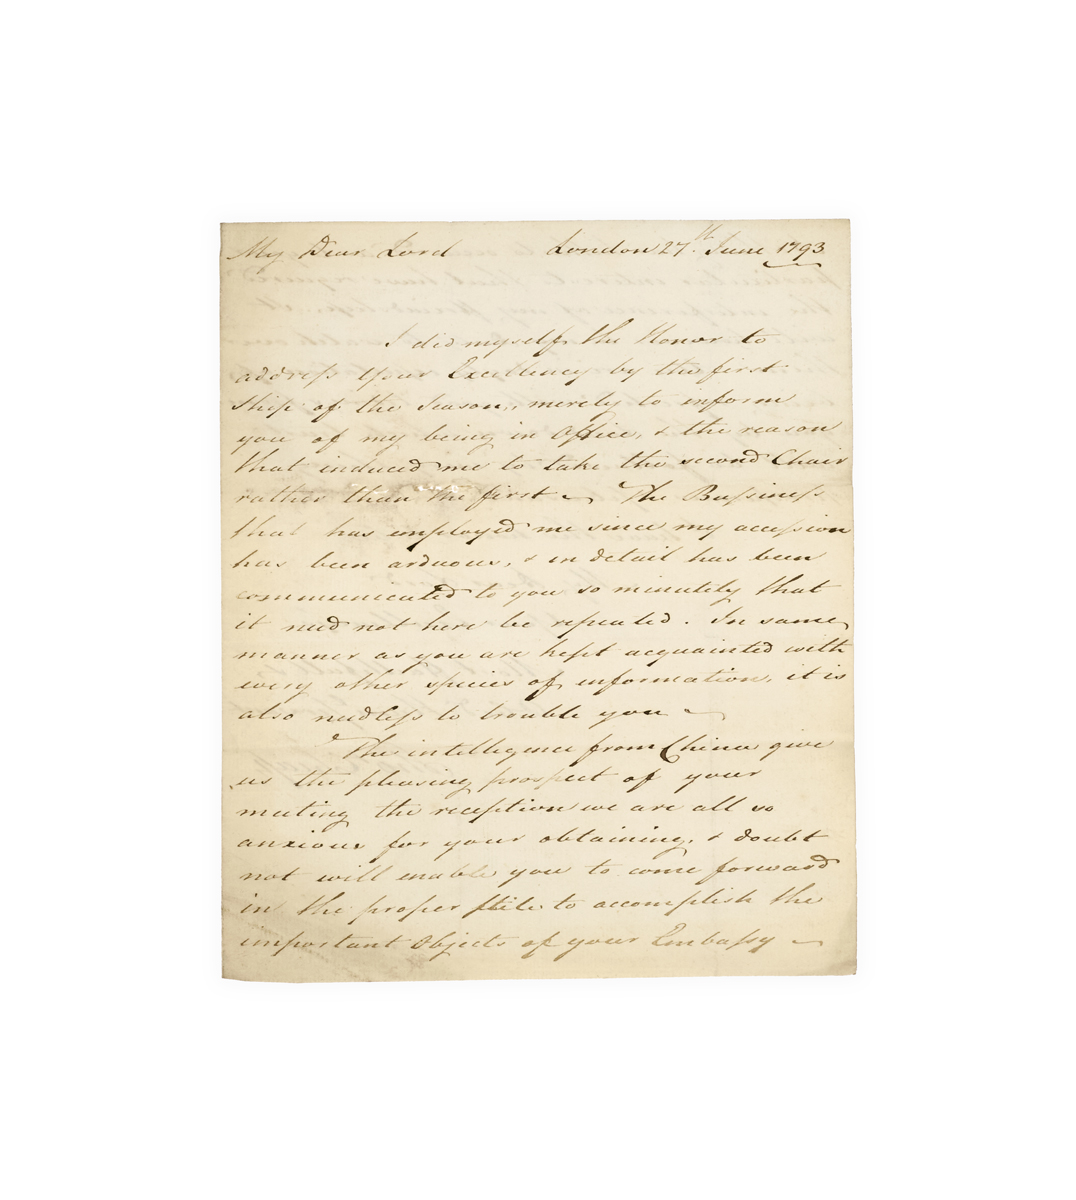 My Dear Lord London 27th June 1793
I did myself the Honor to
address your Excellency by the first
Ship of the Season, merely to inform
you of my being in Office, & the reason
that induced me to take the second Chair
rather than the first The Bussiness
that has employed me since my accession
has been arduous, & in detail has been
communicated to you so minutely that
it need not here be repeated. In same
manner as you are kept acquainted with
every other species of information, it is
also needless to trouble you
The intelligence from China give
us the pleasing prospect of your
meeting the reception we are all so
anxious for your obtaining, & doubt
not will enable you to come forward
in the proper stile to accomplish the
important Objects of your Embassy